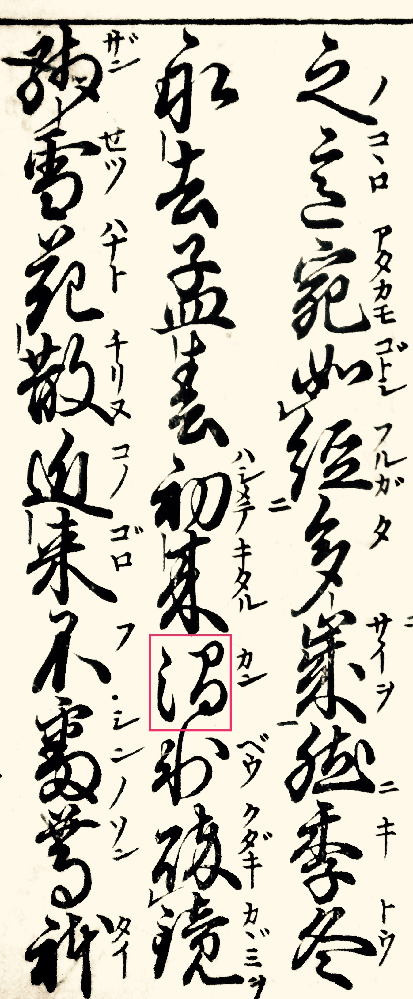 之意宛如經多歳然季冬
ノ コヽロ アタカモ ゴトシ フルガ タ サイヲ ニ キ トウ
永去孟春初来澗氷砕鏡
ハシメテ ニ キタル カン ベウ クダキ カヾミヲ
残雪花散近来不審尊躰
ザン せツ ハナト チリヌ コノ ゴロ フ シンノ ソン タイ